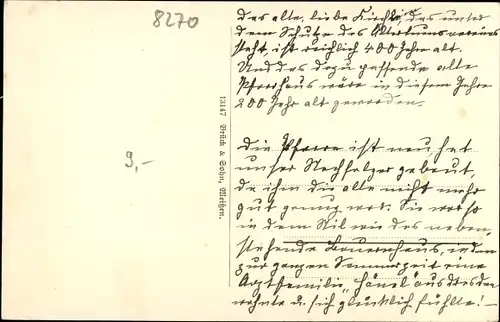 8270
das alte, liebe Kirchlein, das unter
dem Schutze des Altertumsvereins
steht, ist reichlich 400 Jahre alt.
Und das dazu passende alte
Pfarrhaus wäre in diesem Jahre
200 Jahr alt geworden.
9,-
13147 Brück & Sohn, Meißen.
Die Pfarre ist neu hat
unser Nachfolger gebaut,
da ihm die alte nicht mehr
gut genug war. Sie war so
in dem Stil wie das neben-
stehende Bauernhaus, in dem
zur ganzen Sommerzeit eine
Arztfamilie „Hänel" aus Dresden
wohnte u. sich glücklich fühlte! –